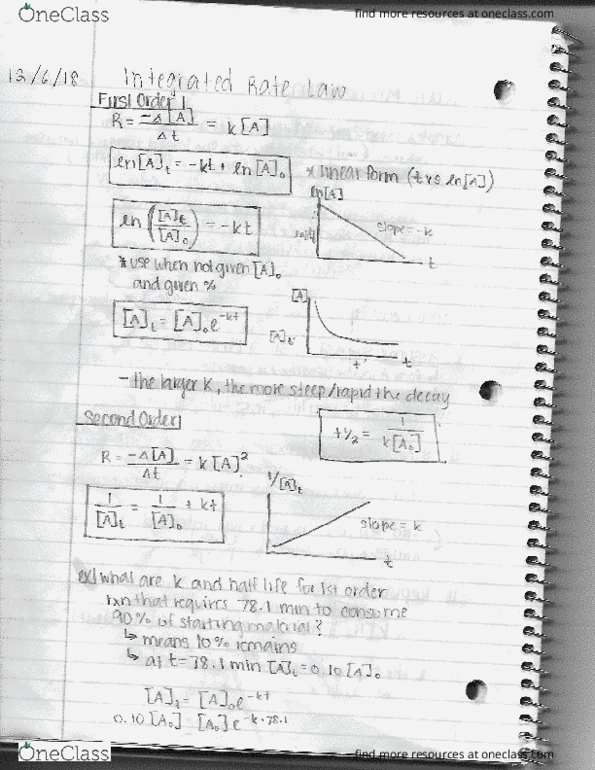 OneClass
find more resources at oneclass.com
12/6/18 Integrated Rate Law
First Order
R = -Δ[A]/Δt = k[A]
ln[A]t = -kt + ln[A]₀
* linear form (t vs ln[A])
ln[A]
slope = -k
t
ln([A]t/[A]₀) = -kt
* use when not given [A]₀
and given %
[A]t = [A]₀e^-kt
[A]
[A]t
t
t
- the larger k, the more steep/rapid the decay
Second Order
t½ = 1/k[A₀]
R = -Δ[A]/Δt = k[A]²
1/[A]t
1/[A]t = 1/[A]₀ + kt
slope = k
t
ex) what are k and half life for 1st order
rxn that requires 78.1 min to consume
90% of starting material?
↳ means 10% remains
↳ at t=78.1 min [A]t = 0.10[A]₀
[A]t = [A]₀e^-kt
0.10[A₀] [A₀]e^-k·78.1
OneClass
find more resources at oneclass.com